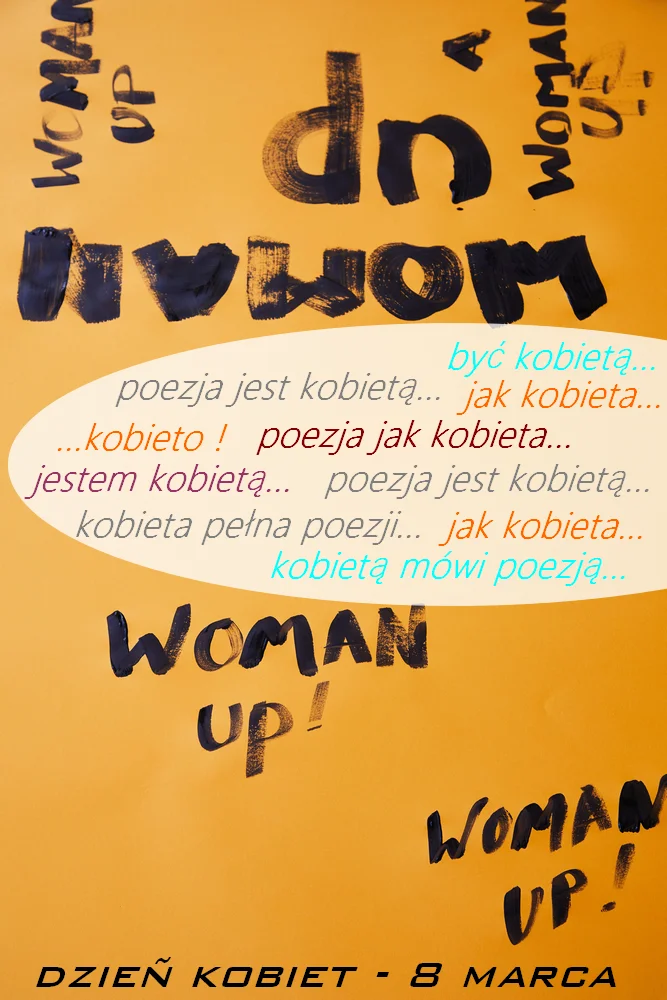 WOMAN
UP
A
WOMAN
UP!
WOMAN
up
być kobietą...
poezja jest kobietą... jak kobieta...
...kobieto ! poezja jak kobieta...
jestem kobietą... poezja jest kobietą...
kobieta pełna poezji... jak kobieta...
kobietą mówi poezją...
WOMAN
UP!
WOMAN
UP!
DZIEÑ KOBIET - 8 MARCA